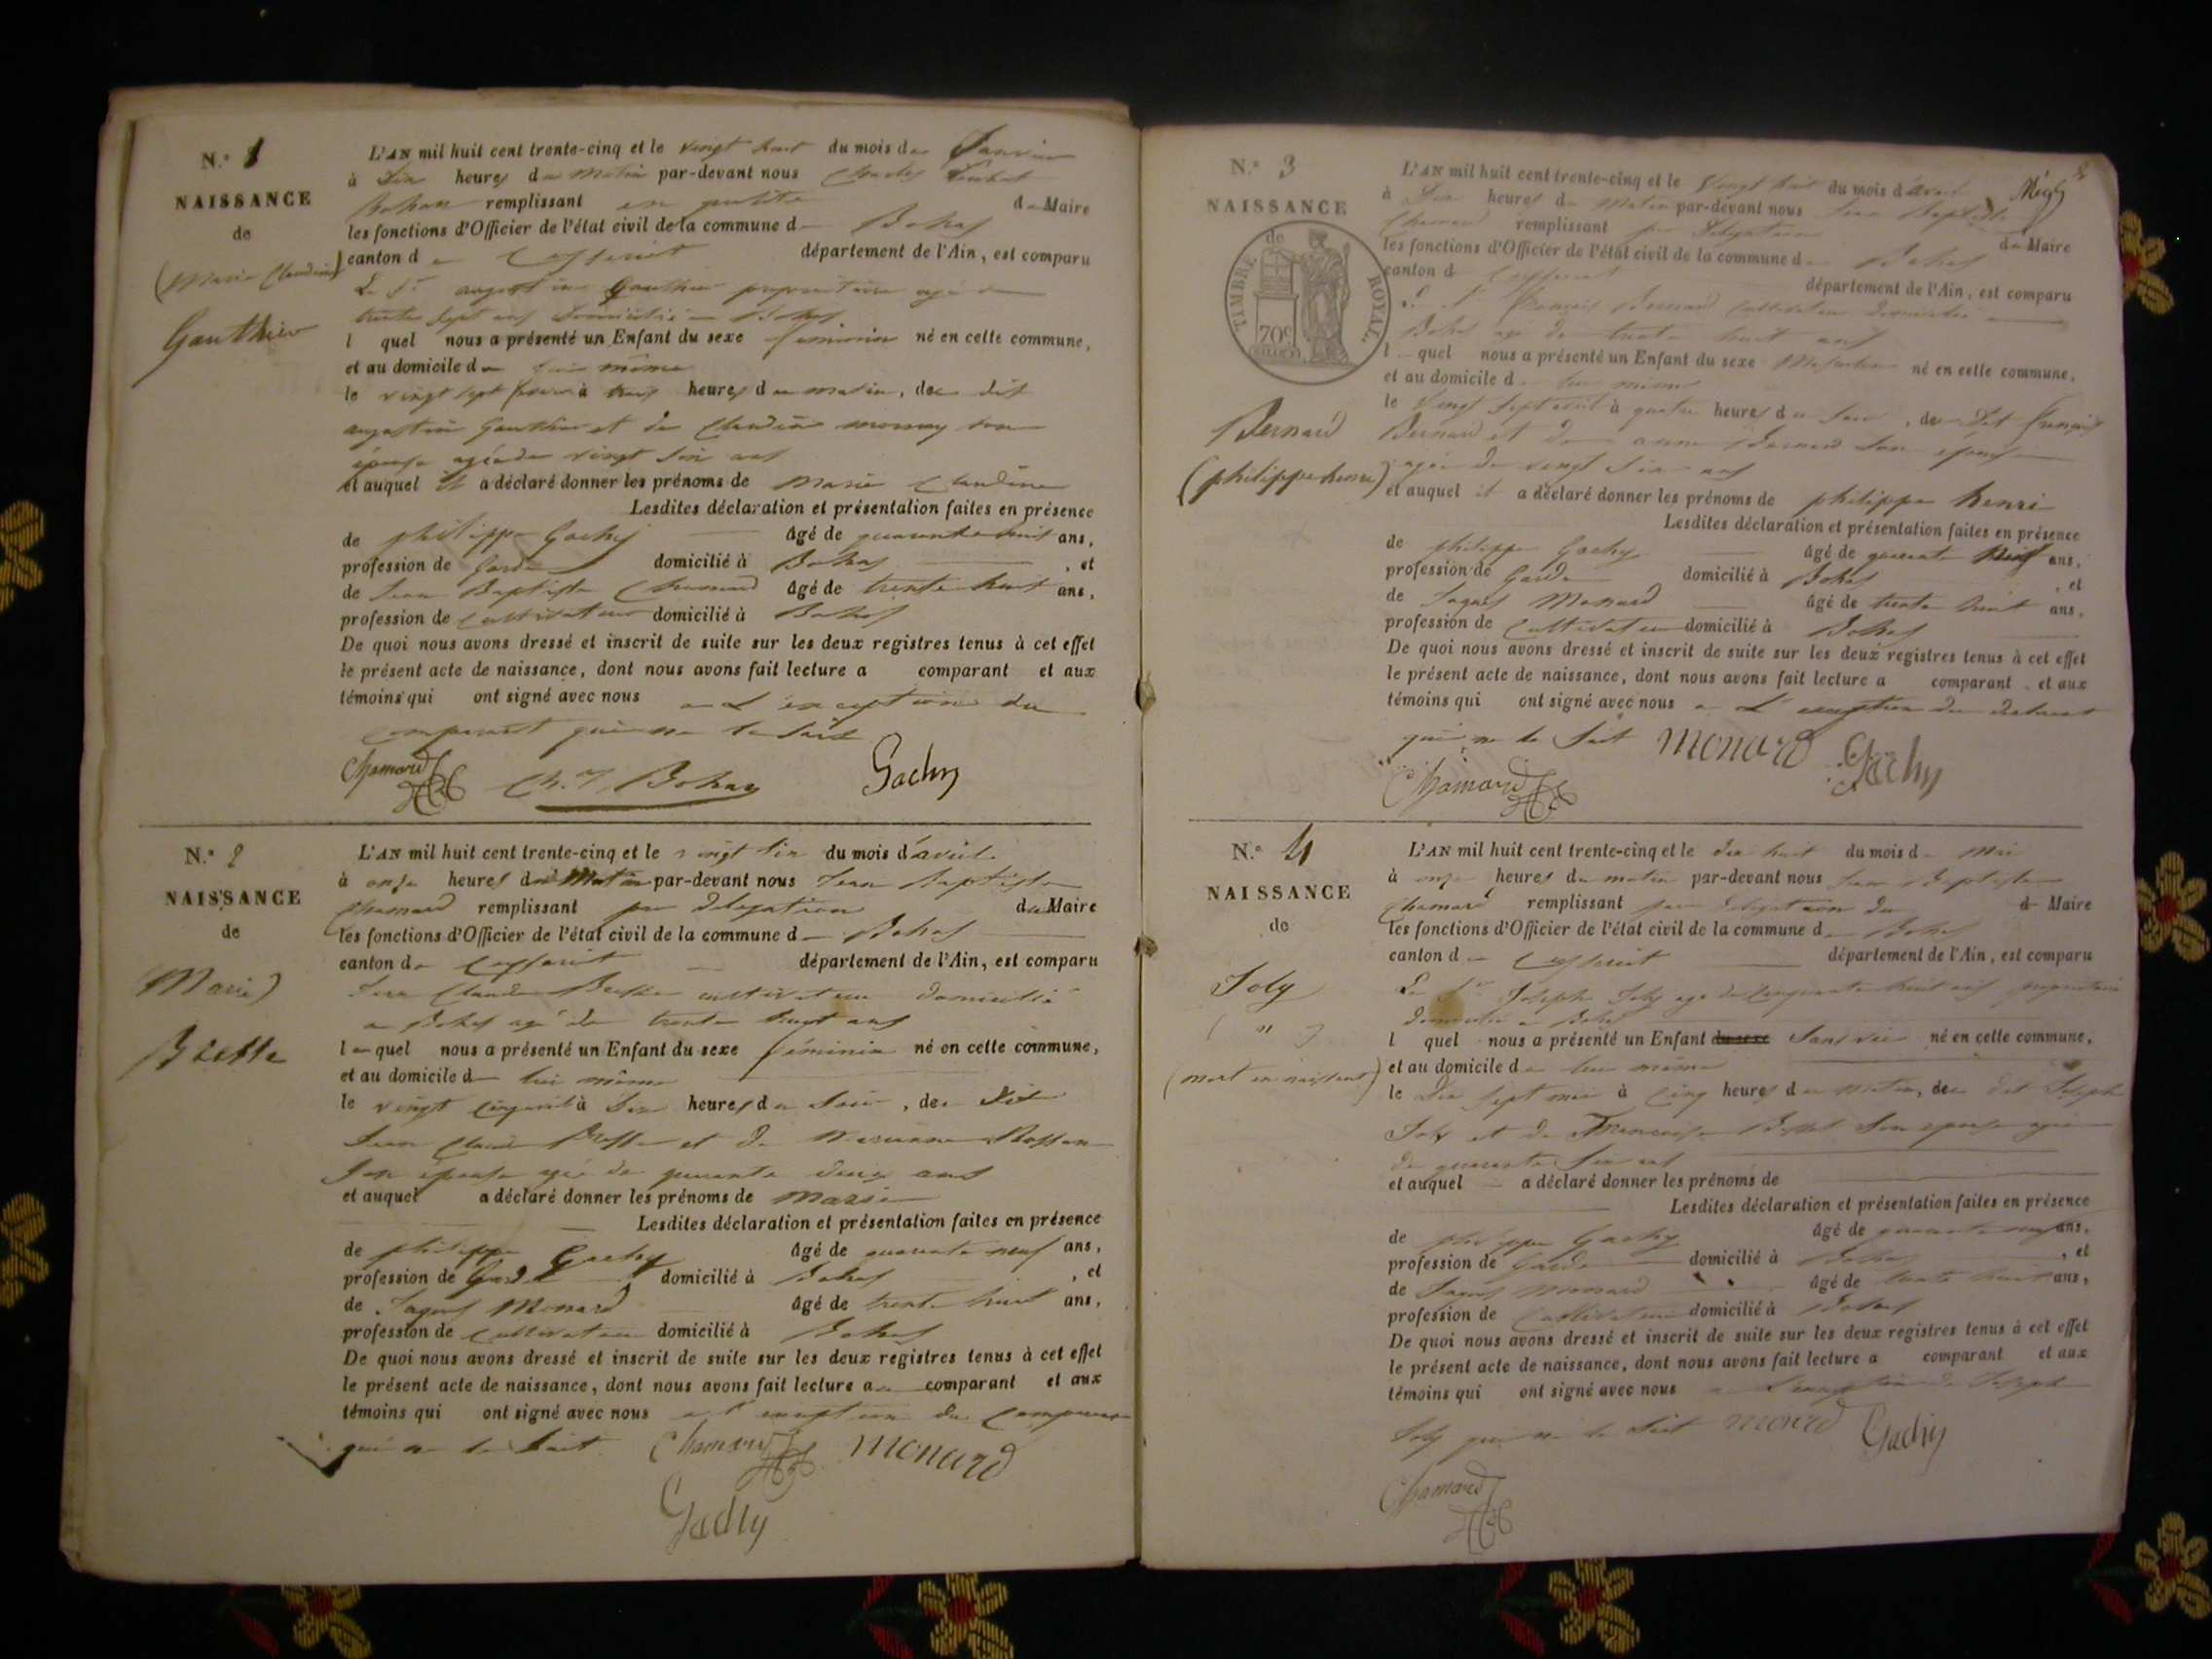 N.º 1
NAISSANCE
de
(Marie Claudine)
Gauthier
L'AN mil huit cent trente-cinq et le vingt huit du mois de Janvier
à Dix heures du matin par-devant nous Charles
Bohan remplissant en qualité de Maire
les fonctions d'Officier de l'état civil de la commune de Bohas
canton de Ceyseriat département de l'Ain, est comparu
Le Sr augustin Gauthier propriétaire agé de
trente sept ans Domicilié a Bohas
l quel nous a présenté un Enfant du sexe féminin né en cette commune,
et au domicile de lui même
le vingt sept à trois heures du matin, de dit
augustin Gauthier et de Claudine son
épouse agée de vingt ans
et auquel il a déclaré donner les prénoms de Marie Claudine
Lesdites déclaration et présentation faites en présence
de philippe Gachy âgé de quarante huit ans,
profession de Garde domicilié à Bohas, et
de Jean Baptiste Chamard âgé de trente huit ans,
profession de Cultivateur domicilié à Bohas
De quoi nous avons dressé et inscrit de suite sur les deux registres tenus à cet effet
le présent acte de naissance, dont nous avons fait lecture a comparant et aux
témoins qui ont signé avec nous a L'exception du
comparant qui ne le sait
Chamard Ch. T. Bohan Gachy
N.º 2
NAISSANCE
de
(Marie)
L'AN mil huit cent trente-cinq et le vingt Six du mois d'avril
à onze heures du Matin par-devant nous Jean Baptiste
Chamard remplissant par délégation du Maire
les fonctions d'Officier de l'état civil de la commune de Bohas
canton de Ceyseriat département de l'Ain, est comparu
Jean Claude cultivateur domicilié
a Bohas agé de trente ans
le quel nous a présenté un Enfant du sexe féminin né en cette commune,
et au domicile de lui même
le vingt cinq avril à Dix heures du Soir, de Dit
Jean Claude et de Marianne
Son épouse agée de quarante deux ans
et auquel a déclaré donner les prénoms de Marie
Lesdites déclaration et présentation faites en présence
de philippe Gachy âgé de quarante neuf ans,
profession de Garde domicilié à Bohas, et
de Jaques Monard âgé de trente huit ans,
profession de Cultivateur domicilié à Bohas
De quoi nous avons dressé et inscrit de suite sur les deux registres tenus à cet effet
le présent acte de naissance, dont nous avons fait lecture a comparant et aux
témoins qui ont signé avec nous a l'exception du Comparant
qui ne le Sait Chamard Monard
Gachy
N.º 3
NAISSANCE
de
TIMBRE ROYAL.
70c
Bernard
(philippe henri)
L'AN mil huit cent trente-cinq et le Vingt huit du mois d'avril
à Dix heures du Matin par-devant nous Jean Baptiste
Chamard remplissant par Délégation du Maire
les fonctions d'Officier de l'état civil de la commune de Bohas
canton de Ceyseriat département de l'Ain, est comparu
Le Sr François Bernard Cultivateur domicilié
Bohas agé de trente huit ans
l quel nous a présenté un Enfant du sexe Masculin né en cette commune,
et au domicile de lui même
le Vingt Sept avril à quatre heures du Soir, de Dit François
Bernard et De anne Bernard Son épouse
agée de vingt Six ans
et auquel il a déclaré donner les prénoms de philippe henri
Lesdites déclaration et présentation faites en présence
de philippe Gachy âgé de quarante Neuf ans,
profession de Garde domicilié à Bohas, et
de Jaques Monard âgé de trente huit ans,
profession de Cultivateur domicilié à Bohas
De quoi nous avons dressé et inscrit de suite sur les deux registres tenus à cet effet
le présent acte de naissance, dont nous avons fait lecture a comparant et aux
témoins qui ont signé avec nous a L'exception du declarant
qui ne le Sait Monard Gachy
Chamard
N.º 4
NAISSANCE
de
Joly
( " )
(mort en naissant)
L'AN mil huit cent trente-cinq et le dix huit du mois de Mai
à onze heures du matin par-devant nous Jean Baptiste
Chamard remplissant par délégation du d Maire
les fonctions d'Officier de l'état civil de la commune de Bohas
canton de Ceyseriat département de l'Ain, est comparu
Le Sr Joseph Joly agé de Cinquante huit ans propriétaire
domicilié a Bohas
l quel nous a présenté un Enfant du sexe Sans vie né en cette commune,
et au domicile de lui même
le Dix Sept mai à Cinq heures du Matin, de dit Joseph
Joly et de Francoise Son épouse agée
de quarante Six ans
et auquel a déclaré donner les prénoms de
Lesdites déclaration et présentation faites en présence
de philippe Gachy âgé de quarante neuf ans,
profession de Garde domicilié à Bohas, et
de Jaques Monard âgé de trente huit ans,
profession de Cultivateur domicilié à Bohas
De quoi nous avons dressé et inscrit de suite sur les deux registres tenus à cet effet
le présent acte de naissance, dont nous avons fait lecture a comparant et aux
témoins qui ont signé avec nous a L'exception de Joseph
Joly qui ne le Sait Monard Gachy
Chamard